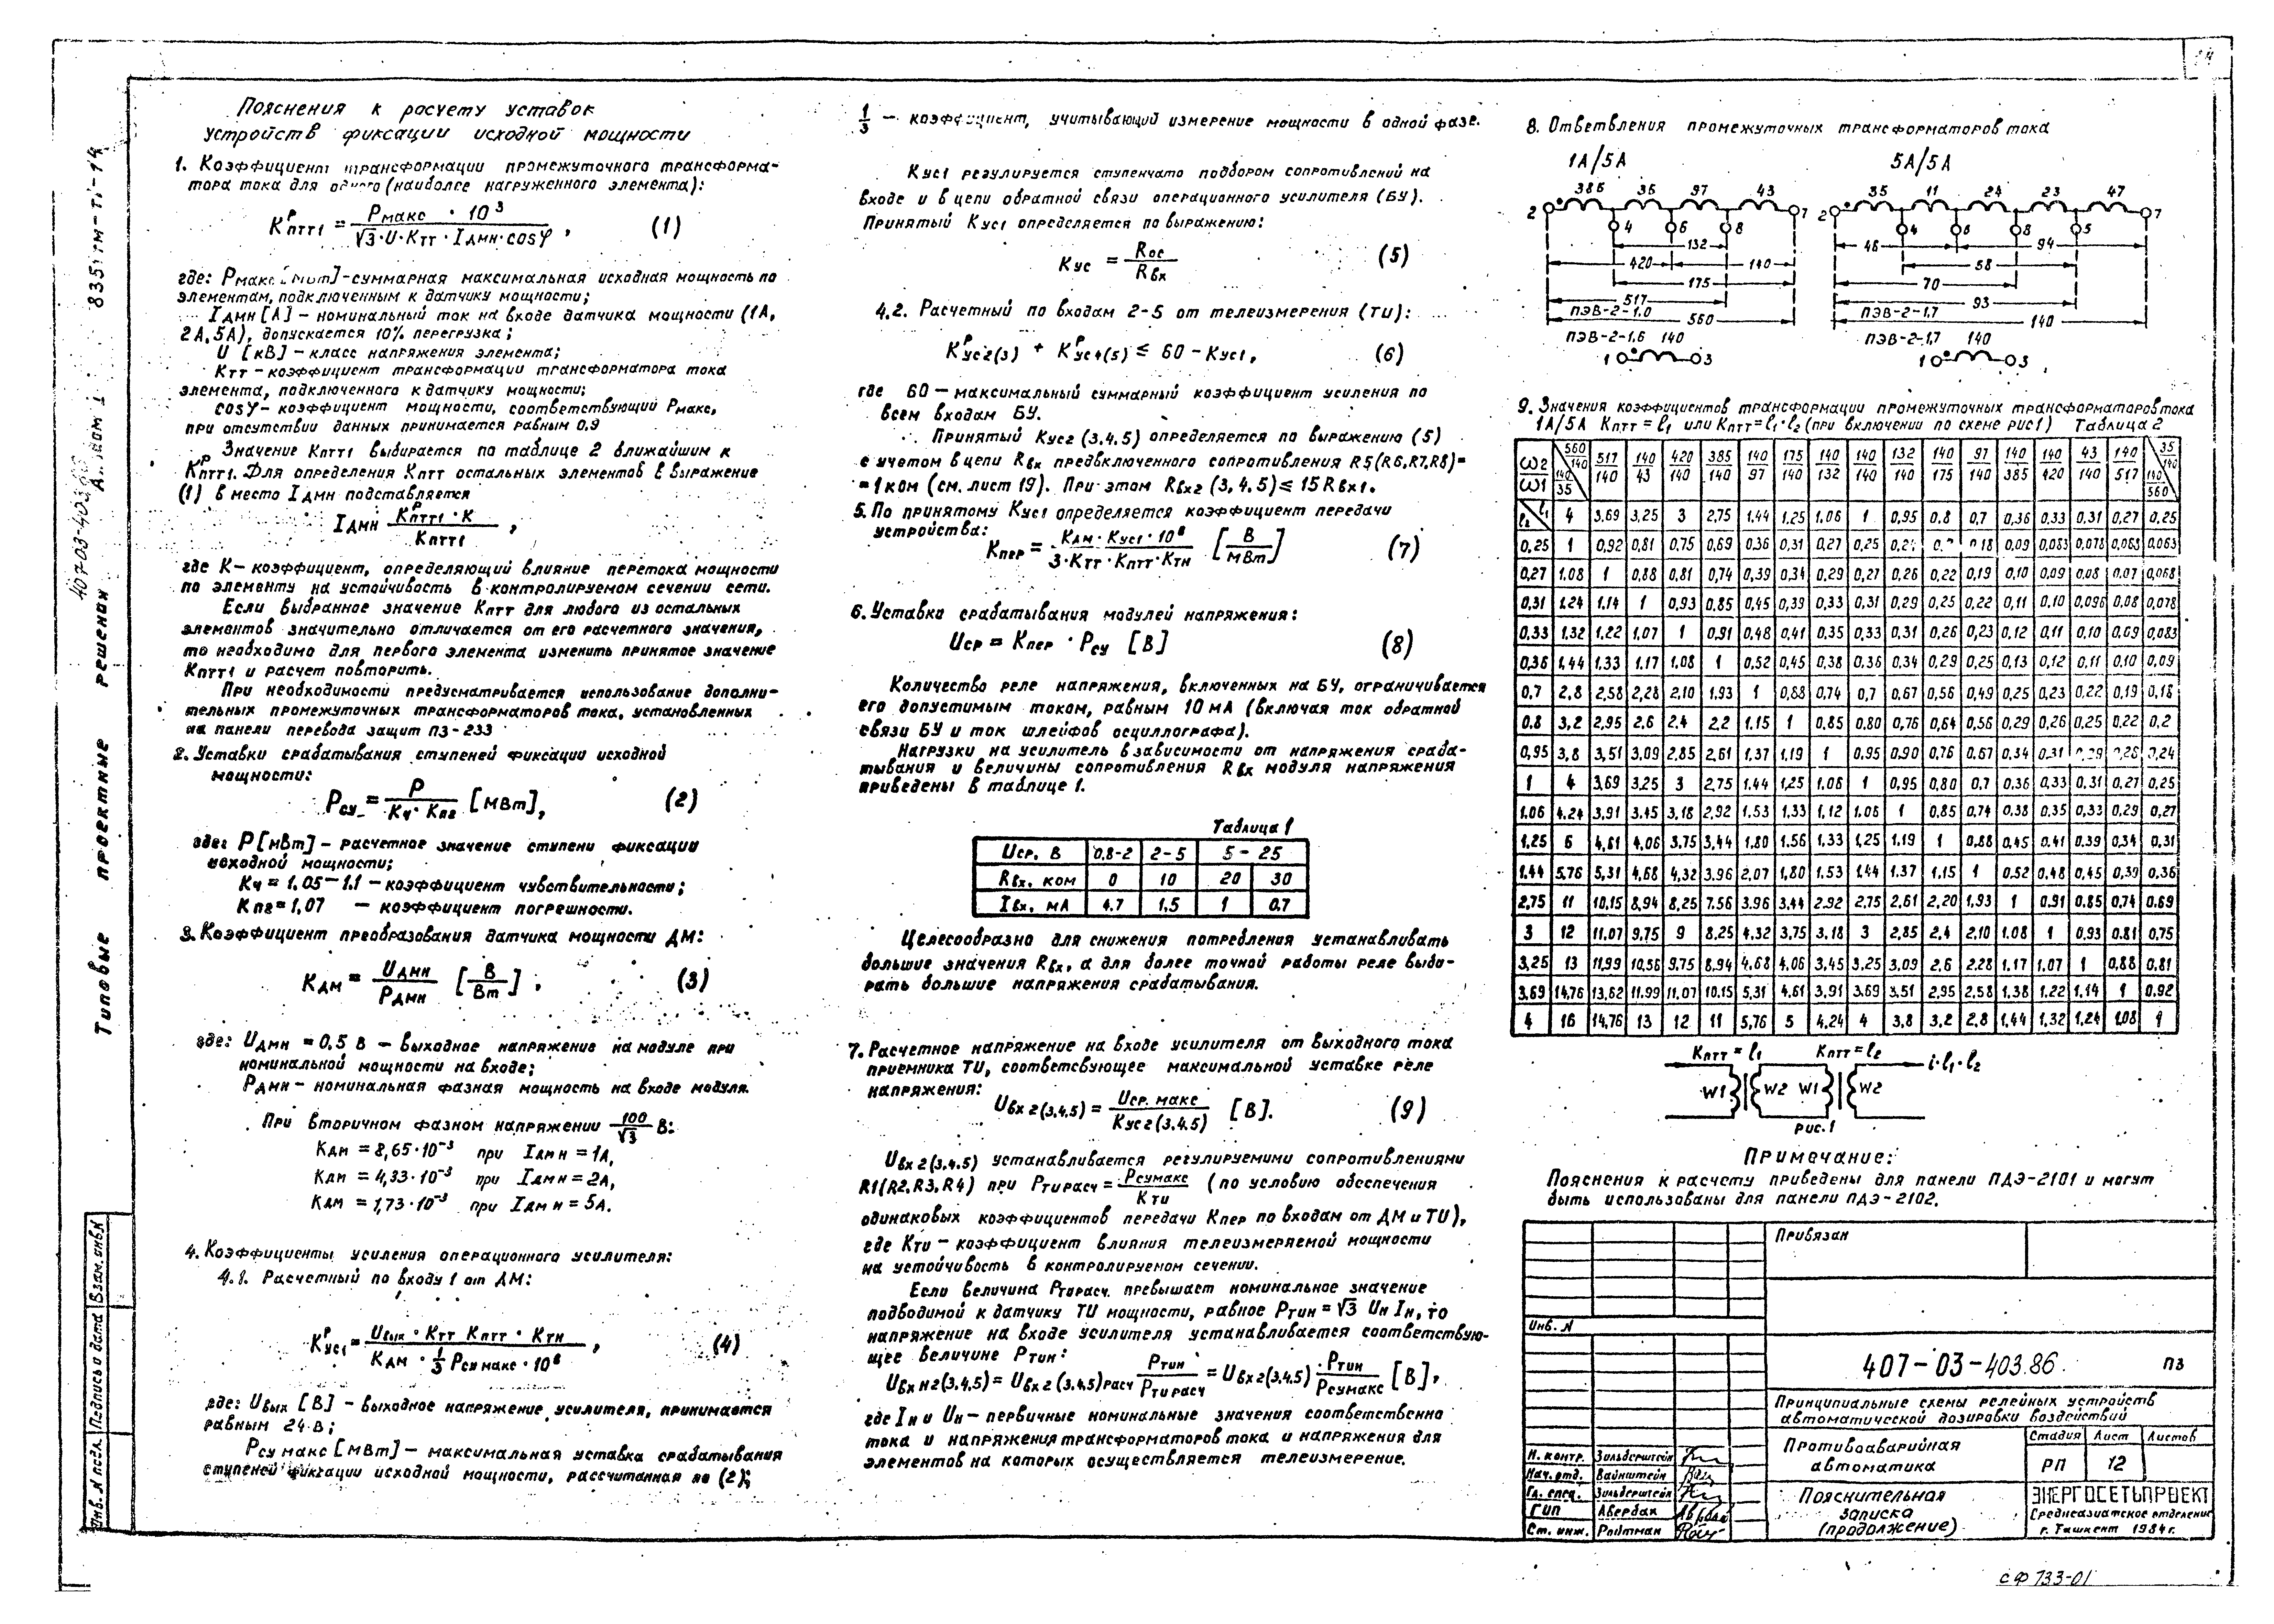 Пояснения к расчету уставок
устройств фиксации исходной мощности
1. Коэффициент трансформации промежуточного трансформа-
тора тока для одного (наиболее нагруженного элемента):
K^P птт1 = Pмакс · 10³ / √3·U·Kтт·Iдмн·cosφ , (1)
где: Pмакс [мвт] - суммарная максимальная исходная мощность по
элементам, подключенным к датчику мощности;
Iдмн [А] - номинальный ток на входе датчика мощности (1А,
2А, 5А), допускается 10% перегрузка;
U [кВ] - класс напряжения элемента;
Kтт - коэффициент трансформации трансформатора тока
элемента, подключенного к датчику мощности;
cosφ - коэффициент мощности, соответствующий Pмакс,
при отсутствии данных принимается равным 0,9
Значение Kптт1 выбирается по таблице 2 ближайшим к
K^P птт1. Для определения Kптт остальных элементов в выражение
(1) в место Iдмн подставляется
Iдмн K^P птт1 · K / Kптт1 ,
где K - коэффициент, определяющий влияние перетока мощности
по элементу на устойчивость в контролируемом сечении сети.
Если выбранное значение Kптт для любого из остальных
элементов значительно отличается от его расчетного значения,
то необходимо для первого элемента изменить принятое значение
Kптт1 и расчет повторить.
При необходимости предусматривается использование дополни-
тельных промежуточных трансформаторов тока, установленных
на панели перевода защит ПЗ-233
2. Уставки срабатывания ступеней фиксации исходной
мощности:
Pсу = P / Kч · Kпг [МВт], (2)
где: P [МВт] - расчетное значение ступени фиксации
исходной мощности;
Kч = 1,05-1.1 - коэффициент чувствительности;
Kпг = 1,07 - коэффициент погрешности.
3. Коэффициент преобразования датчика мощности ДМ:
Kдм = Uдмн / Pдмн [В / Вт] , (3)
где: Uдмн = 0,5 В - выходное напряжение на модуле при
номинальной мощности на входе;
Pдмн - номинальная фазная мощность на входе модуля.
При вторичном фазном напряжении 100/√3 В:
Kдм = 8,65·10⁻³ при Iдмн = 1А,
Kдм = 4,33·10⁻³ при Iдмн = 2А,
Kдм = 1,73·10⁻³ при Iдмн = 5А.
4. Коэффициенты усиления операционного усилителя:
4.1. Расчетный по входу 1 от ДМ:
K^P ус1 = Uвых · Kтт Kптт · Kтн / Kдм · 1/3 Pсу макс · 10⁶ , (4)
где: Uвых [В] - выходное напряжение усилителя, принимается
равным 24 В;
Pсу макс [МВт] - максимальная уставка срабатывания
ступеней фиксации исходной мощности, рассчитанная по (2);
1/3 - коэффициент, учитывающий измерение мощности в одной фазе.
Kус1 регулируется ступенчато подбором сопротивлений на
входе и в цепи обратной связи операционного усилителя (БУ).
Принятый Kус1 определяется по выражению:
Kус = Rос / Rвх (5)
4.2. Расчетный по входам 2-5 от телеизмерения (ТИ):
K^P ус2(3) + K^P ус4(5) ≤ 60 - Kус1, (6)
где 60 - максимальный суммарный коэффициент усиления по
всем входам БУ.
Принятый Kус2 (3,4,5) определяется по выражению (5)
с учетом в цепи Rвх предвключенного сопротивления R5(R6,R7,R8)=
=1ком (см. лист 19). При этом Rвх2 (3,4,5) ≤ 15Rвх1.
5. По принятому Kус1 определяется коэффициент передачи
устройства:
Kпер = Kдм · Kус1 · 10⁶ / 3·Kтт·Kптт·Kтн [В / МВт] (7)
6. Уставка срабатывания модулей напряжения:
Uср = Kпер · Pсу [В] (8)
Количество реле напряжения, включенных на БУ, ограничивается
его допустимым током, равным 10 мА (включая ток обратной
связи БУ и ток шлейфов осциллографа).
Нагрузки на усилитель в зависимости от напряжения сраба-
тывания и величины сопротивления Rвх модуля напряжения
приведены в таблице 1.
Таблица 1
Uср. В 0,8-2 2-5 5-25
Rвх, ком 0 10 20 30
Iвх, мА 4.7 1,5 1 0,7
Целесообразно для снижения потребления устанавливать
большие значения Rвх, а для более точной работы реле выби-
рать большие напряжения срабатывания.
7. Расчетное напряжение на входе усилителя от выходного тока
приемника ТИ, соответсвующее максимальной уставке реле
напряжения:
Uвх2(3,4,5) = Uср. макс / Kус2(3,4,5) [В]. (9)
Uвх2(3,4,5) устанавливается регулируемыми сопротивлениями
R1(R2,R3,R4) при Pтирасч = Pсумакс / Kти (по условию обеспечения
одинаковых коэффициентов передачи Kпер по входам от ДМ и ТИ),
где Kти - коэффициент влияния телеизмеряемой мощности
на устойчивость в контролируемом сечении.
Если величина Pтирасч. превышает номинальное значение
подводимой к датчику ТИ мощности, равное Pтин = √3 Uн Iн, то
напряжение на входе усилителя устанавливается соответствую-
щее величине Pтин:
Uвхн2(3,4,5) = Uвх2(3,4,5)расч Pтин / Pтирасч = Uвх2(3,4,5) · Pтин / Pсумакс [В],
где Iн и Uн - первичные номинальные значения соответственно
тока и напряжения трансформаторов тока и напряжения для
элементов на которых осуществляется телеизмерение.
8. Ответвления промежуточных трансформаторов тока
1А/5А 5А/5А
386 35 97 43
2 4 6 8 7
132
420 140
175
517
ПЭВ-2-1.0
560
ПЭВ-2-1,6 140
1 3
35 11 24 23 47
2 4 6 8 5 7
46 94
58
70
93
ПЭВ-2-1,7
140
ПЭВ-2-1,7 140
1 3
9. Значения коэффициентов трансформации промежуточных трансформаторов тока
1А/5А Kптт = l1 или Kптт = l1·l2 (при включении по схеме рис1) Таблица 2
ω2/ω1 560/140 140/35 517/140 140/43 420/140 385/140 140/97 175/140 140/132 140/140 132/140 140/175 97/140 140/385 140/420 43/140 140/517 35/140 140/560
l2 l1 4 3,69 3,25 3 2,75 1,44 1,25 1,06 1 0,95 0,8 0,7 0,36 0,33 0.31 0,27 0,25
0,25 1 0,92 0,81 0,75 0,69 0,36 0,31 0,27 0,25 0,18 0,09 0,083 0,078 0,063 0,063
0,27 1.08 1 0,88 0,81 0,74 0,39 0,34 0,29 0,27 0,26 0,22 0,19 0,10 0,09 0,08 0,07 0,068
0,31 1.24 1,14 1 0,93 0,85 0,45 0,39 0,33 0,31 0,29 0,25 0,22 0,11 0,10 0,096 0,08 0,078
0,33 1,32 1,22 1,07 1 0,91 0,48 0,41 0,35 0,33 0,31 0,26 0,23 0,12 0,11 0,10 0,09 0,083
0,36 1,44 1,33 1.17 1,08 1 0,52 0,45 0,38 0,36 0,34 0,29 0,25 0,13 0,12 0,11 0,10 0,09
0,7 2,8 2,58 2,28 2,10 1.93 1 0,88 0,74 0,7 0,67 0,56 0,49 0,25 0,23 0,22 0,19 0,18
0,8 3,2 2,95 2,6 2,4 2,2 1,15 1 0,85 0,80 0,76 0,64 0,56 0,29 0,26 0,25 0,22 0,2
0,95 3,8 3,51 3,09 2,85 2,61 1,37 1,19 1 0,95 0,90 0,76 0,67 0,34 0,31 0,29 0,26 0,24
1 4 3,69 3,25 3 2,75 1,44 1,25 1,06 1 0,95 0,80 0,7 0,36 0,33 0,31 0,27 0,25
1.06 4,24 3,91 3,45 3,18 2,92 1.53 1.33 1,12 1.06 1 0,85 0,74 0,38 0,35 0,33 0,29 0,27
1,25 6 4,61 4,06 3,75 3,44 1,80 1.56 1,33 1,25 1.19 1 0,88 0,45 0,41 0,39 0,34 0,31
1,44 5,76 5,31 4,68 4,32 3,96 2,07 1,80 1,53 1,44 1,37 1,15 1 0,52 0,48 0,45 0,39 0,36
2,75 11 10,15 8,94 8,25 7,56 3,96 3,44 2,92 2,75 2,61 2,20 1,93 1 0,91 0,85 0,74 0.69
3 12 11,07 9,75 9 8,25 4,32 3,75 3,18 3 2,85 2,4 2,10 1.08 1 0,93 0,81 0,75
3,25 13 11,99 10,56 9,75 8,94 4,68 4,06 3,45 3,25 3,09 2,6 2,28 1.17 1,07 1 0,88 0,81
3,69 14,76 13,62 11,99 11,07 10.15 5,31 4,61 3,91 3,69 3,51 2,95 2,58 1,38 1,22 1,14 1 0,92
4 16 14,76 13 12 11 5,76 5 4,24 4 3,8 3,2 2,8 1,44 1,32 1,24 1,08 1
Kптт = l1 Kптт = l2 i·l1·l2
W1 W2 W1 W2
Рис.1
Примечание:
Пояснения к расчету приведены для панели ПДЭ-2101 и могут
быть использованы для панели ПДЭ-2102.
Привязан
Инв. N
407-03-403.86. ПЗ
Принципиальные схемы релейных устройств
автоматической дозировки воздействий
Противоаварийная
автоматика
Стадия Лист Листов
РП 12
Пояснительная
записка
(продолжение)
ЭНЕРГОСЕТЬПРОЕКТ
Среднеазиатское отделение
г. Ташкент 1984г.
Н. контр. Зильдерштейн
Нач. отд. Вайнштейн
Гл. спец. Зильдерштейн
ГИП Авербах
Ст. инж. Ройтман
СФ 733-01
Типовые проектные решения
407-03-403.86
Инв. N подл. Подпись и дата Взам. инв.N